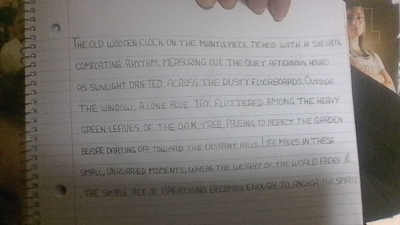 THE OLD WOODEN CLOCK ON THE MANTLEPIECE TICKED WITH A
COMFORTING RHYTHM, MEASURING OUT THE QUIET AFTERNOON HOURS
AS SUNLIGHT DRIFTED ACROSS THE DUSTY FLOORBOARDS. OUTSIDE
THE WINDOW, A LONE BLUE JAY FLUTTERED AMONG THE HEAVY
GREEN LEAVES OF THE OAK TREE, PAUSING TO INSPECT THE GARDEN
BEFORE DARTING OFF TOWARD THE DISTANT HILLS. LIFE MOVES IN THESE
SMALL, UNHURRIED MOMENTS, WHERE THE WEIGHT OF THE WORLD FADES &
THE SIMPLE ACT OF BREATHING BECOMES ENOUGH TO ANCHOR THE